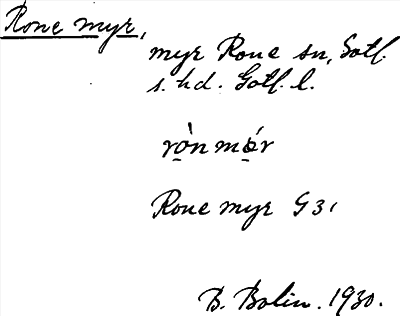 Rone myr,
myr Rone sn, Gotl.
s. hd. Gotl. l.
rò̱n mǿ̱r
Rone myr G 31
B. Bolin. 1930.